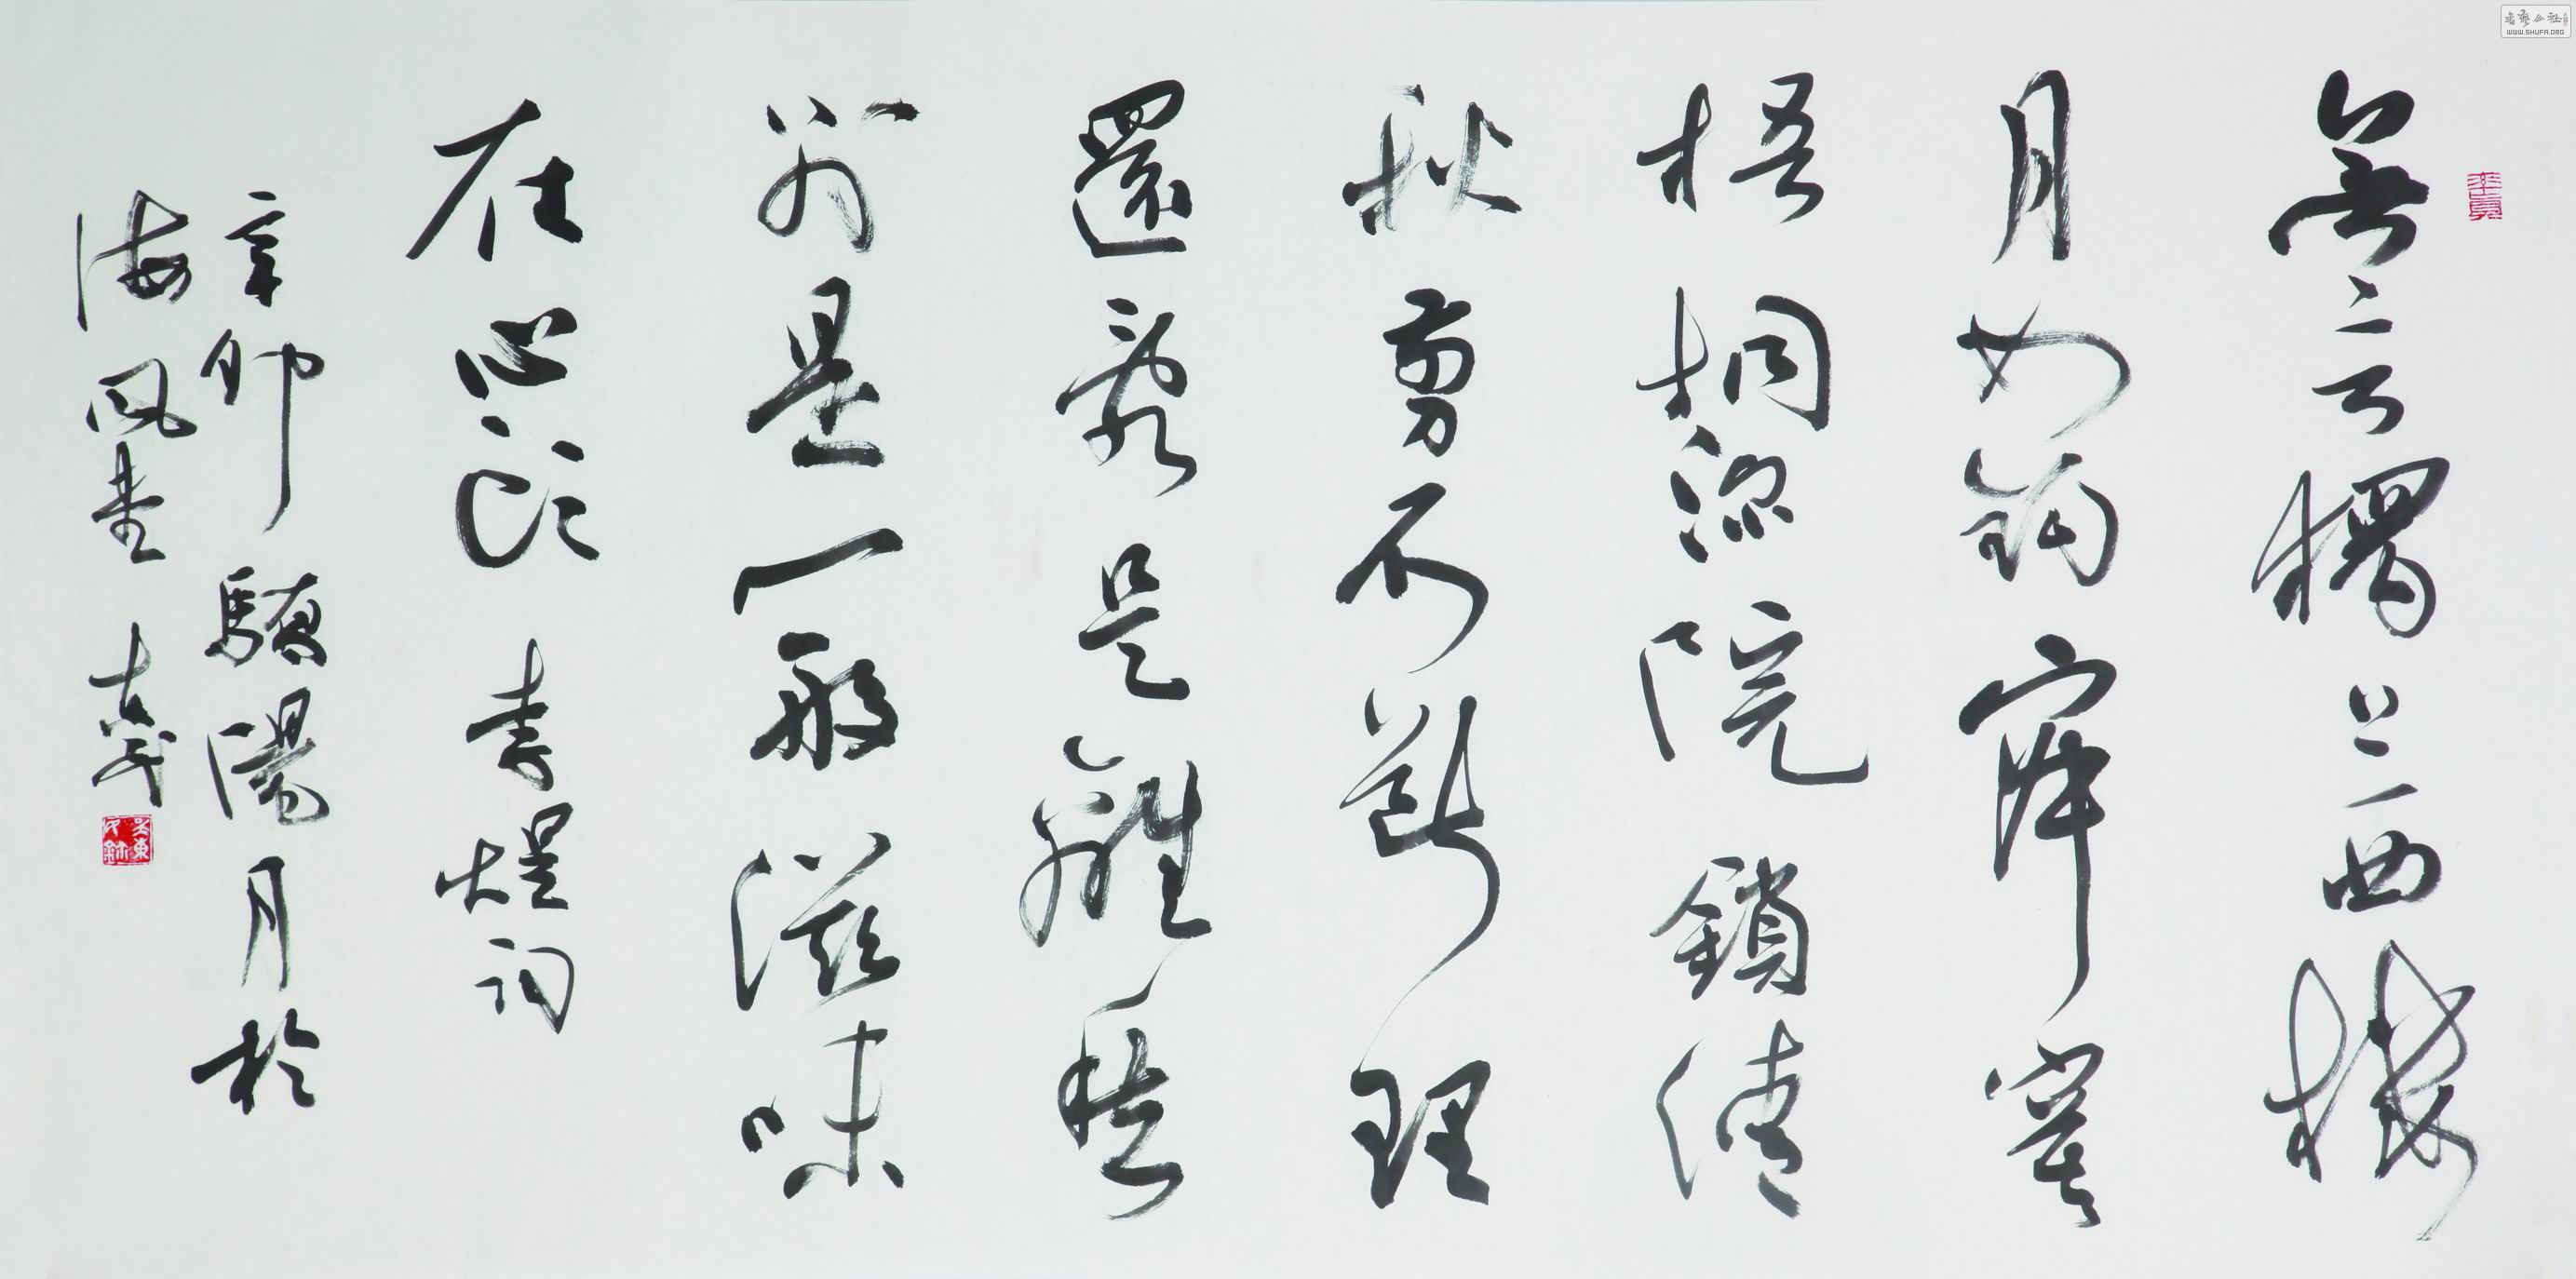 無言獨上西樓
月如鉤寂寞
梧桐深院鎖清
秋剪不斷理
還亂是離愁
別是一般滋味
在心頭 李煜词
辛卯驕陽月於
海風堂
WWW.SHUFA.ORG